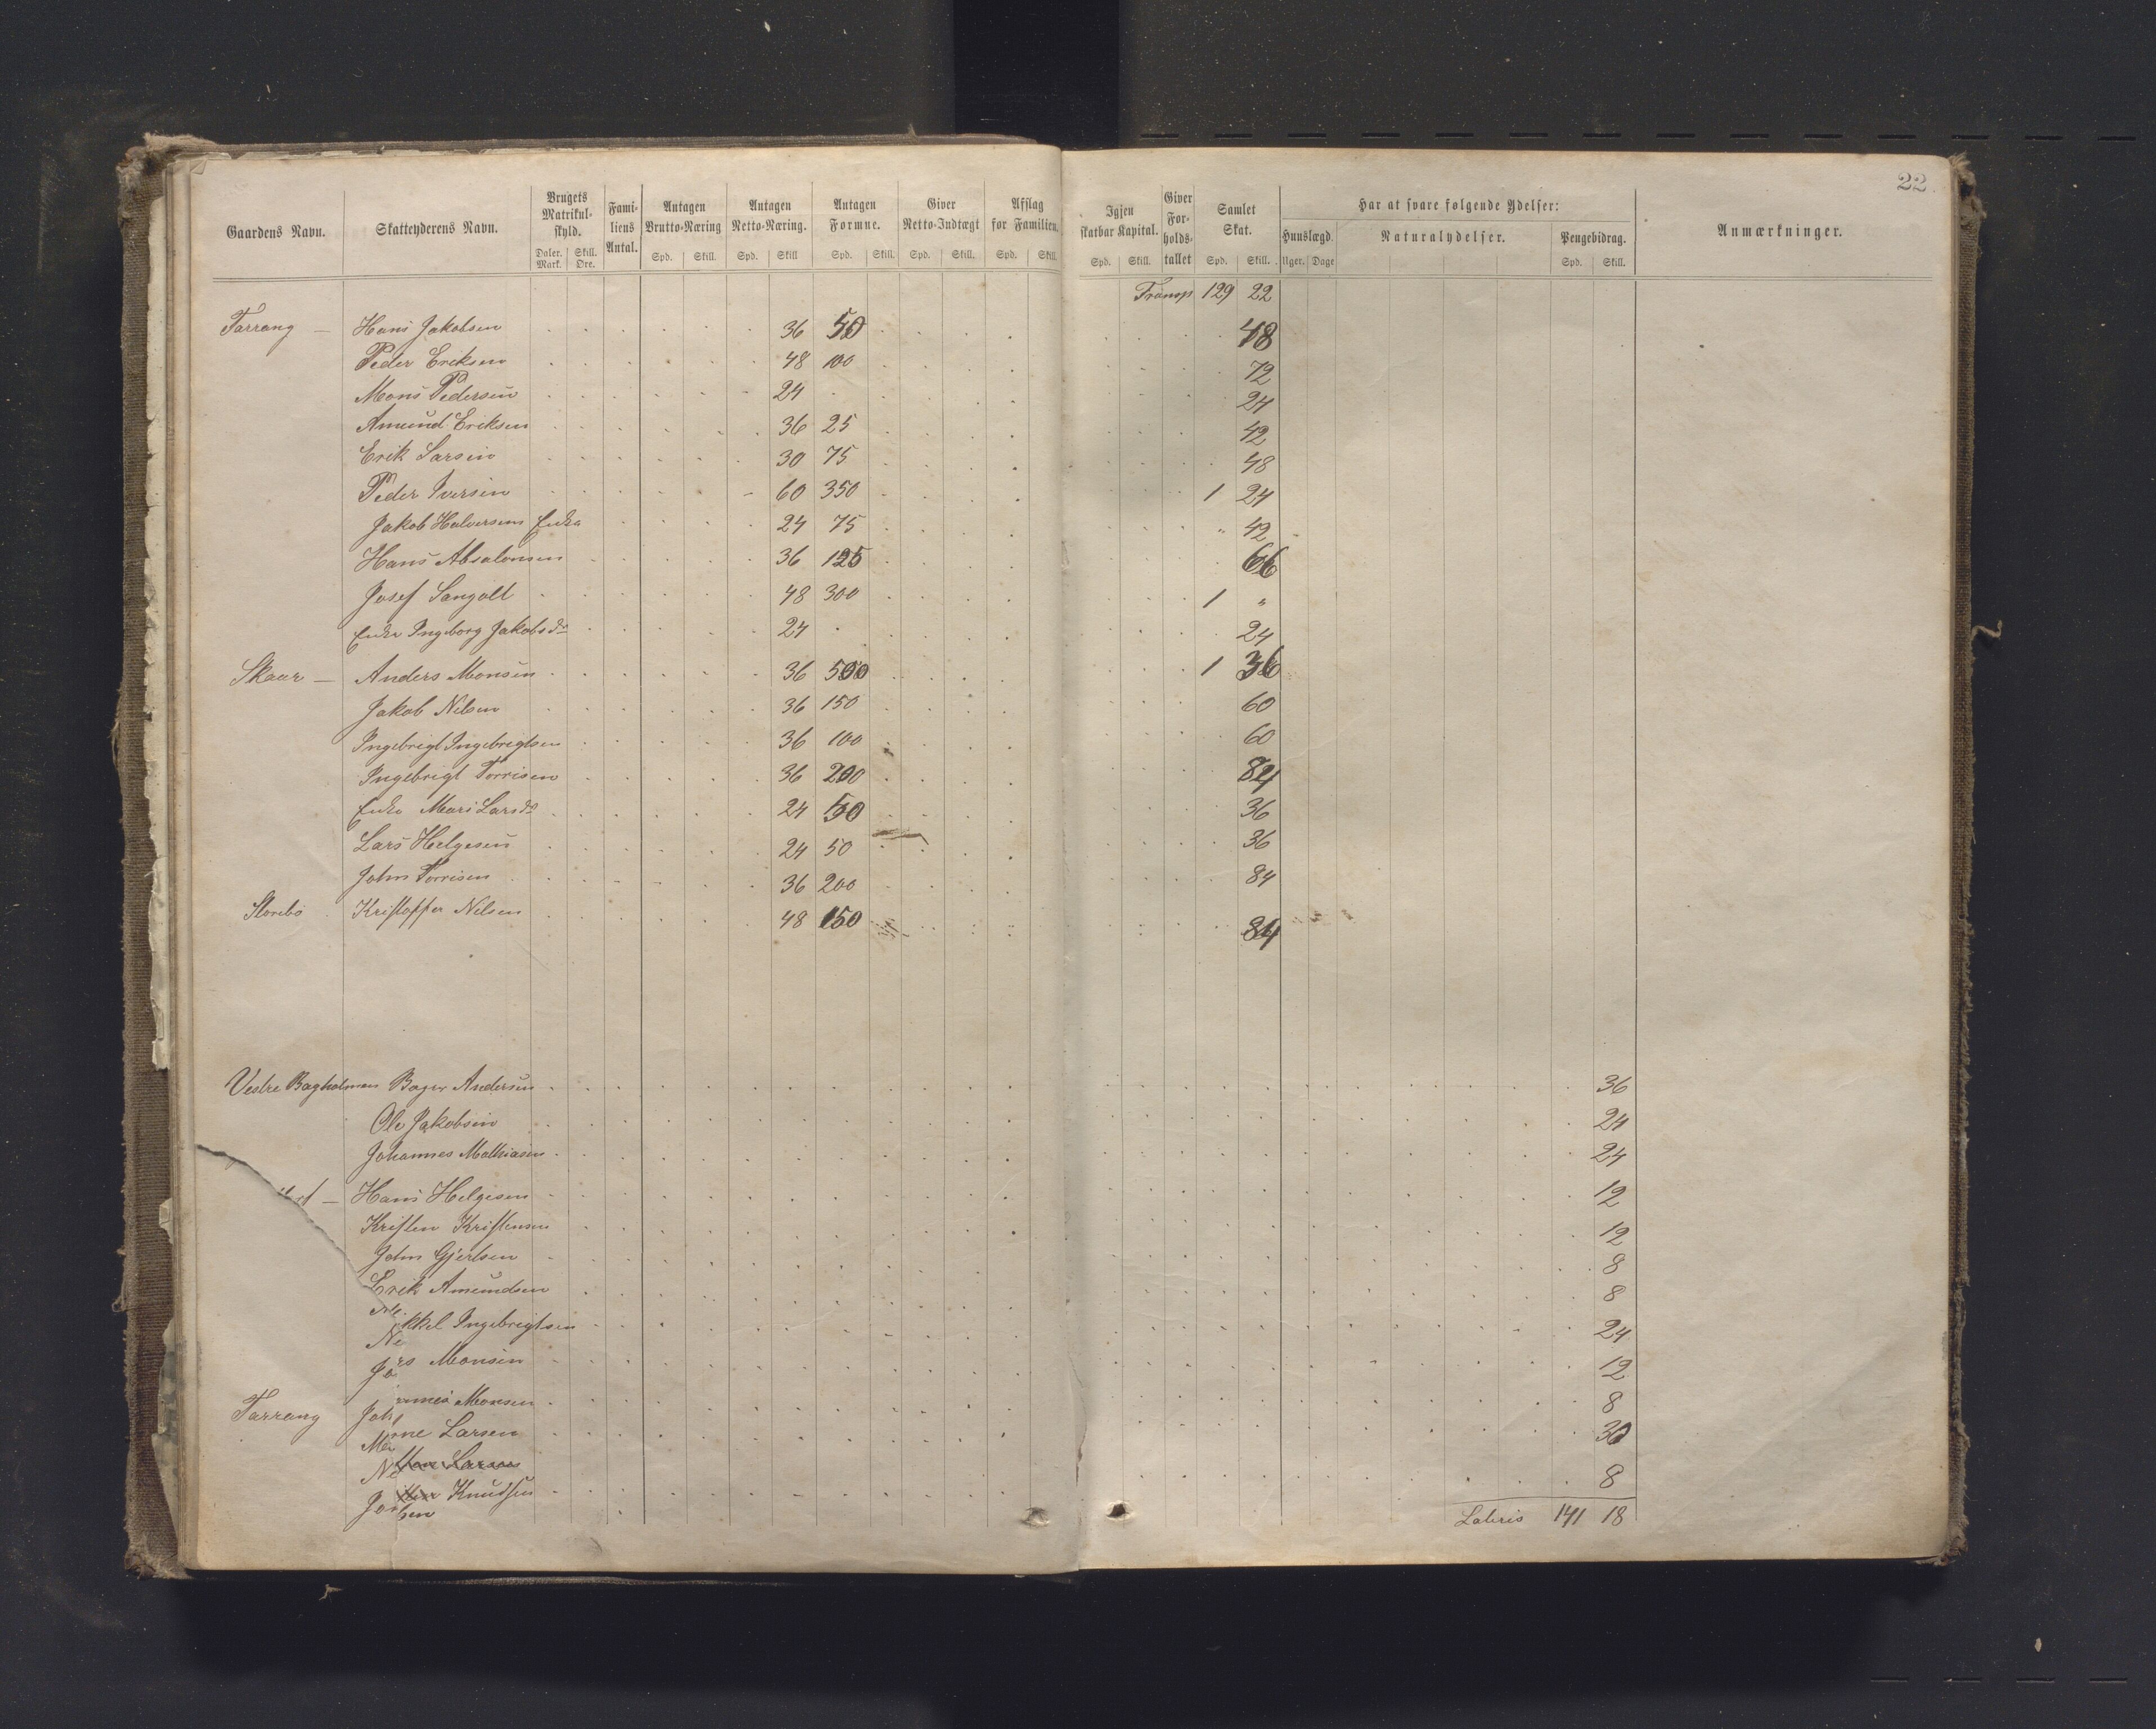 22
Gaardens Navn. Skatteyderens Navn. Brugets Matrikul-skyld. Fami-liens Antal. Antagen Brutto-Næring Antagen Netto-Næring. Antagen Formue. Giver Netto-Indtægt Afslag for Familien. Igjen skatbar Kapital. Giver For-holds-tallet Samlet Skat. Har at svare følgende Ydelser: Anmærkninger.
Hunslægd. Naturalydelser. Pengebidrag.
Daler. Mark. Skill. Øre. Spd. Skill. Spd. Skill Spd. Skill. Spd. Skill. Spd. Skill. Spd. Skill. Spd. Skill. Uger. Dage Spd. Skill.
Transp 129 22
Tarrang — Hans Jakobsen 36 50 48
Peder Eriksen 48 100 72
Mons Pedersen 24 24
Amund Eriksen 36 25 42
Erik Larsen 30 75 48
Peder Iversen 60 350 1 24
Jakob Halversens Enke 24 75 " 42
Hans Absalonsen 36 125 66
Josef Langolt 48 300 1 "
Enke Ingeborg Jakobsdr 24 24
Skaar — Anders Monsen 36 500 1 36
Jakob Nilsen 36 150 60
Ingebrigt Ingebrigtsen 36 100 60
Ingebrigt Torrisen 36 200 84
Enke Mari Larsdr 24 50 36
Lars Helgesen 24 50 36
John Torrisen 36 200 84
Storebö Kristoffer Nilsen 48 150 84
Vestre Bagholmen Andersen 36
Ole Jakobsen 24
Johannes Mathiasen 24
— Hans Helgesen 12
Kristen Kristensen 12
John Gjertsen 8
Erik Amundsen 8
kkel Ingebrigtsen 24
Monsen 12
Monsen 8
Tarrang Larsen 30
Larsen
Knudsen 8
Lateris 141 18